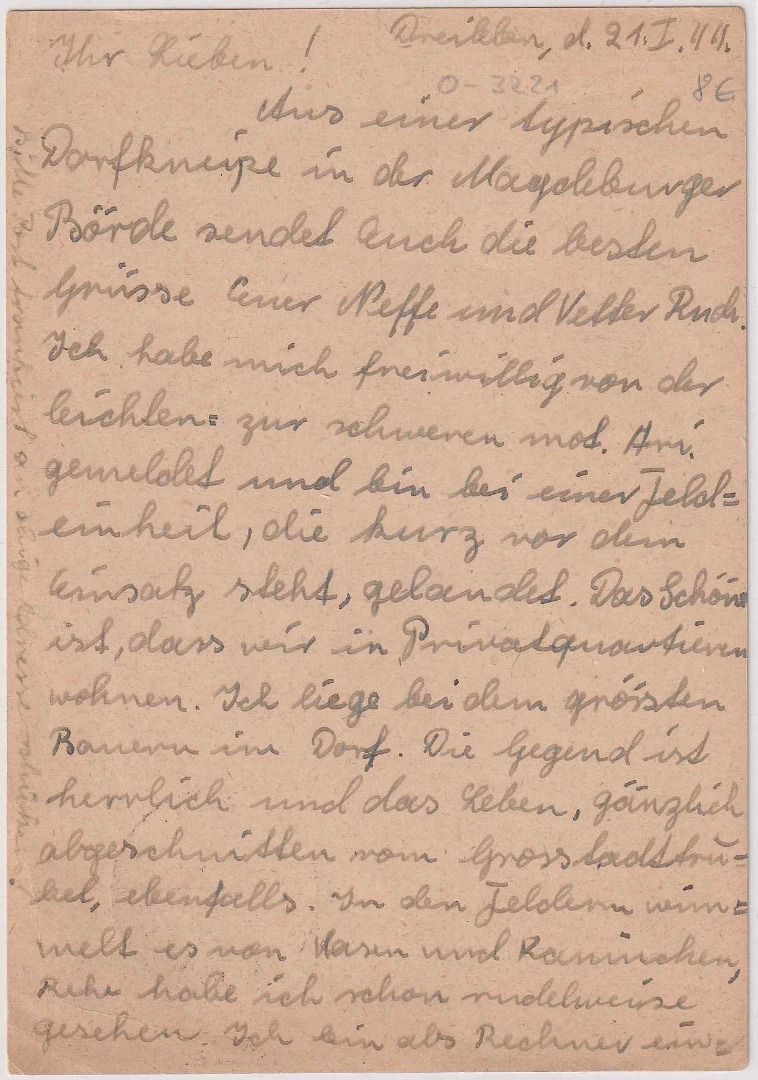 Dreileben, d. 21.I.44.
Ihr Lieben!
O-3221 8€
Aus einer typischen
Dorfkneipe in der Magdeburger
Börde sendet Euch die besten
Grüsse Euer Neffe und Vetter Rudi.
Ich habe mich freiwillig von der
leichten= zur schweren mot. Ari.
gemeldet und bin bei einer Feld=
einheit, die kurz vor dem
Einsatz steht, gelandet. Das Schöne
ist, dass wir in Privatquartieren
wohnen. Ich liege bei dem grössten
Bauern im Dorf. Die Gegend ist
herrlich und das Leben, gänzlich
abgeschnitten vom Grosstadttru=
bel, ebenfalls. In den Feldern wim=
melt es von Hasen und Kaninchen,
Rehe habe ich schon rudelweise
gesehen. Ich bin als Rechner ein=
Bitte an obige Adresse schicken!